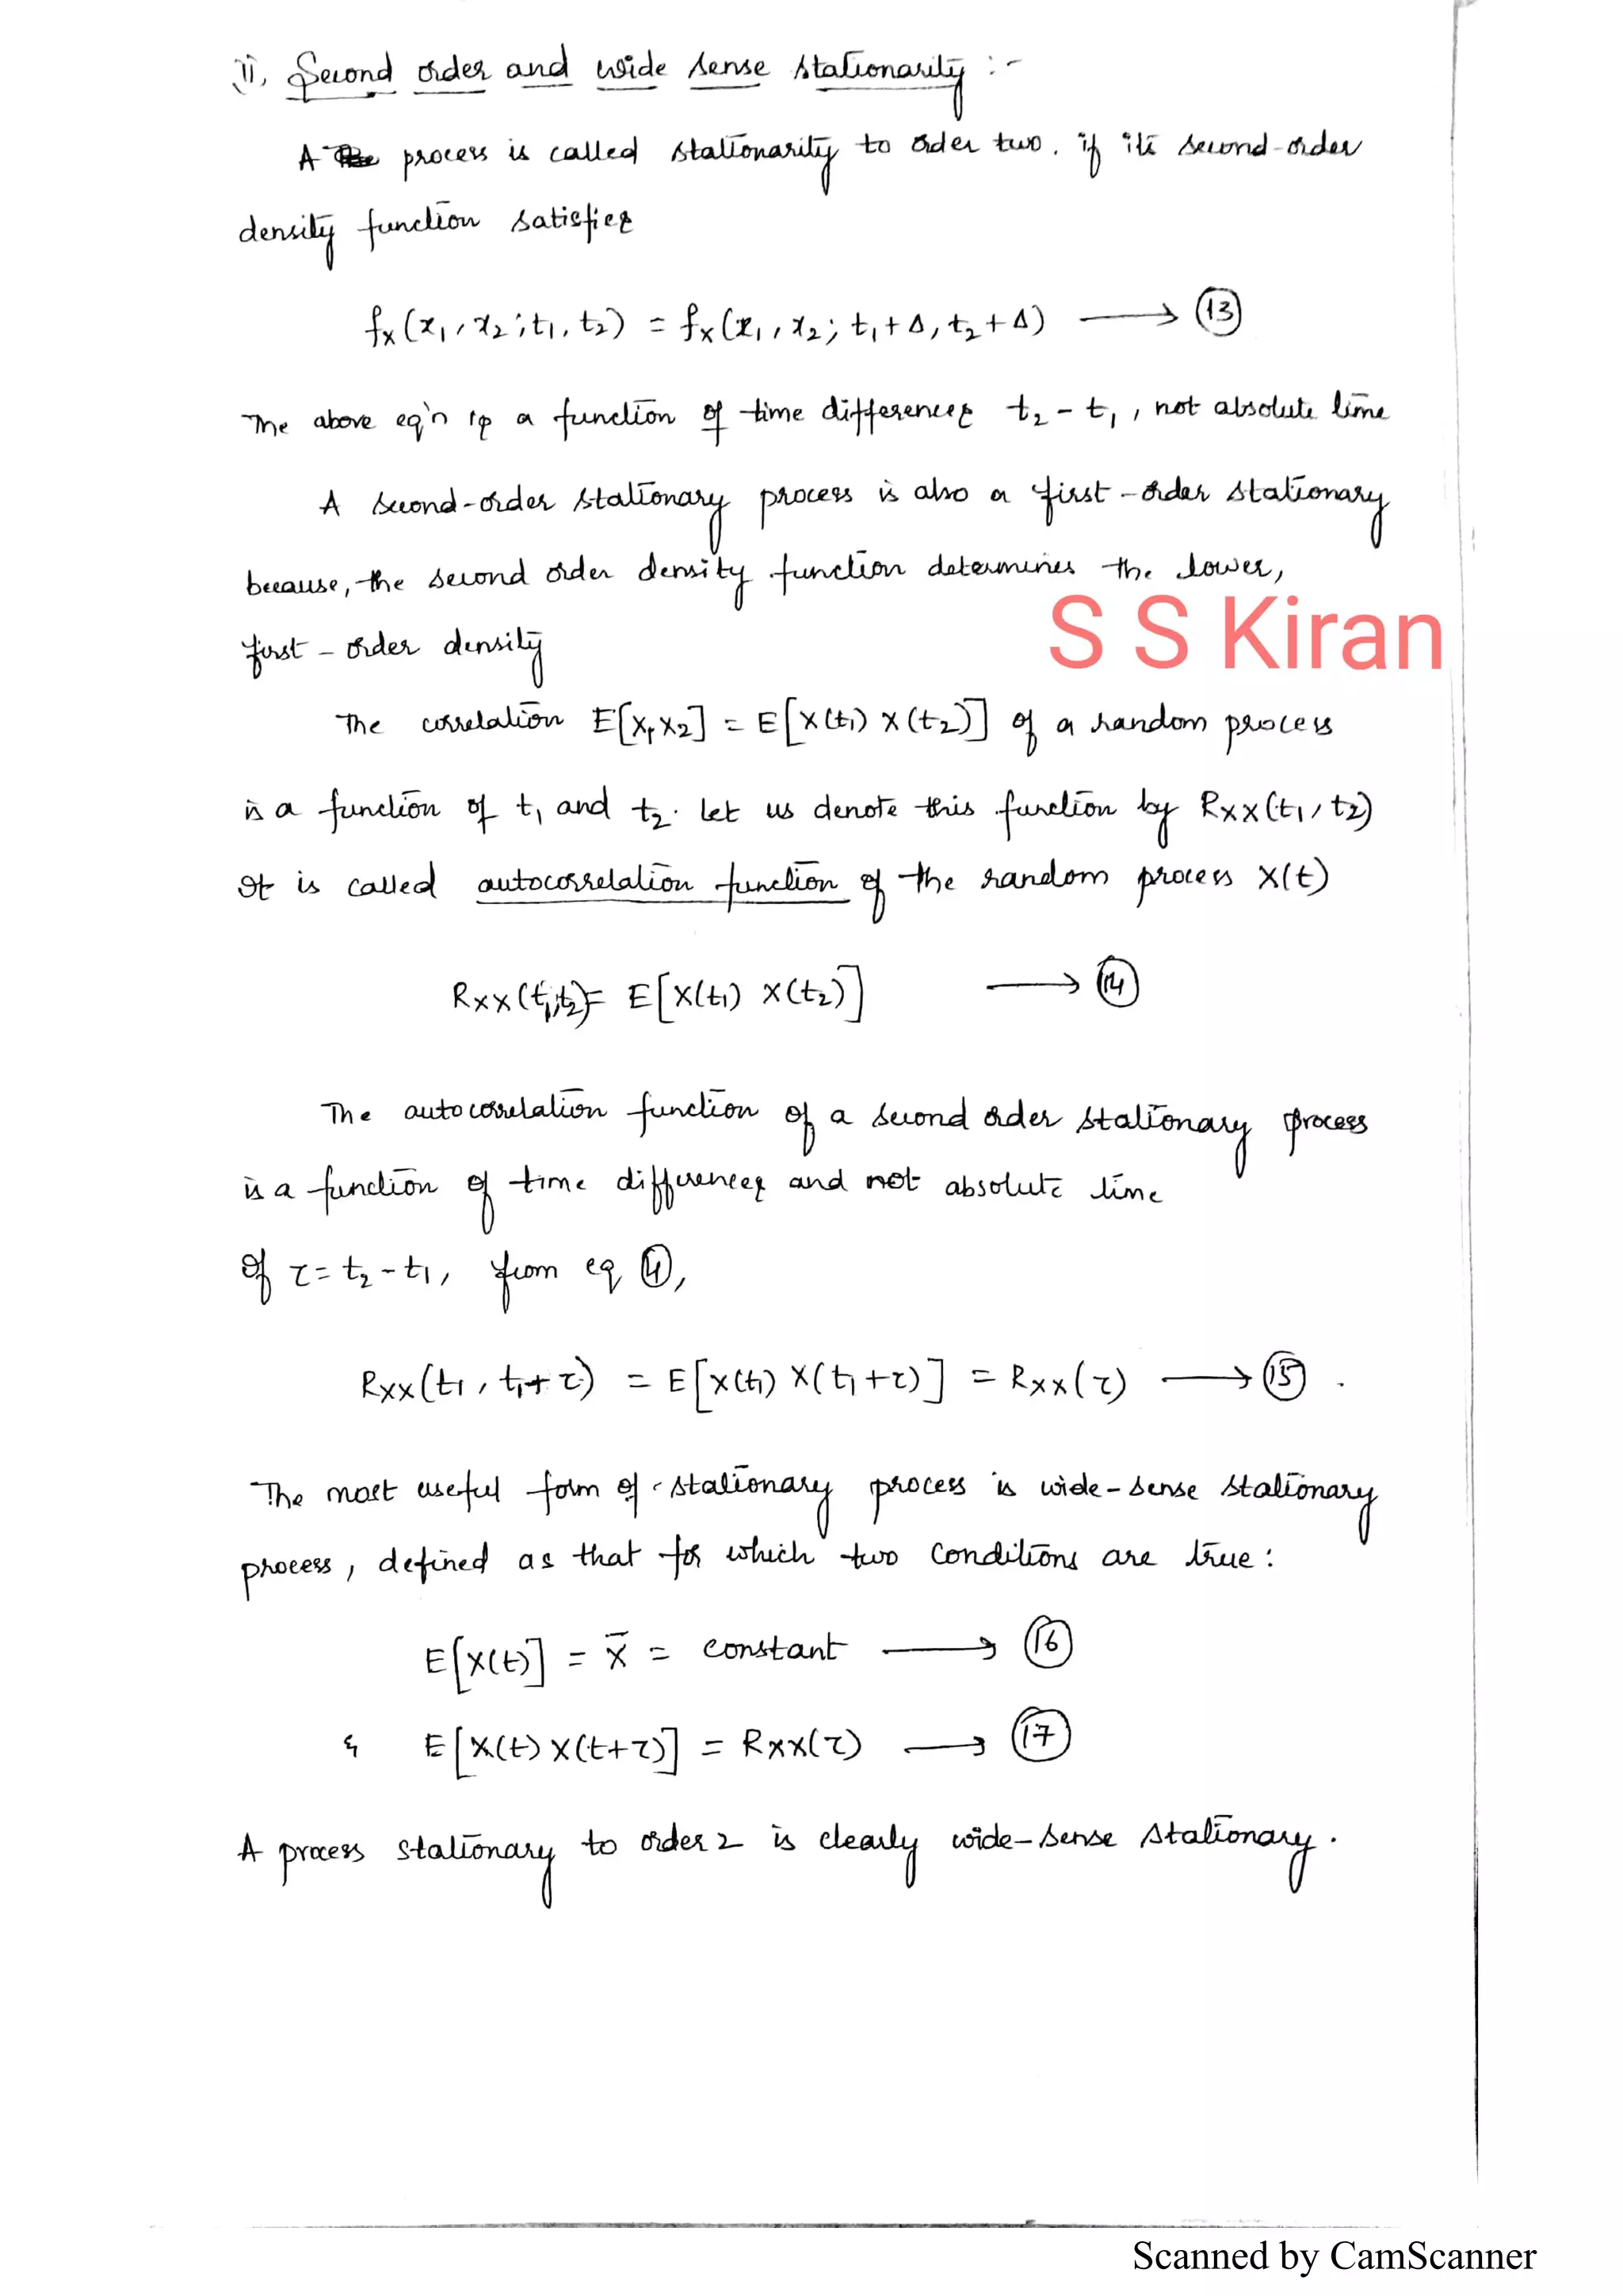 ii, Second order and wide sense stationarity :-
A process is called stationarity to order two, if its second-order
density function satisfies
fx(x1, x2; t1, t2) = fx(x1, x2; t1+Δ, t2+Δ) ⟶ (13)
The above eq'n is a function of time differences t2 - t1, not absolute time
A second-order stationary process is also a first-order stationary
because, the second order density function determines the lower,
S S Kiran
first-order density
The correlation E[X1 X2] = E[X(t1) X(t2)] of a random process
is a function of t1 and t2. Let us denote this function by RXX(t1, t2)
It is called autocorrelation function of the random process X(t)
RXX(t1,t2) = E[X(t1) X(t2)] ⟶ (14)
The autocorrelation function of a second order stationary process
is a function of time differences and not absolute time
of τ = t2 - t1, from eq (4),
RXX(t1, t1+τ) = E[X(t1) X(t1+τ)] = RXX(τ) ⟶ (15).
The most useful form of stationary process is wide-sense stationary
process, defined as that for which two conditions are true:
E[X(t)] = X̄ = constant ⟶ (16)
& E[X(t) X(t+τ)] = RXX(τ) ⟶ (17)
A process stationary to order 2 is clearly wide-sense stationary.
Scanned by CamScanner